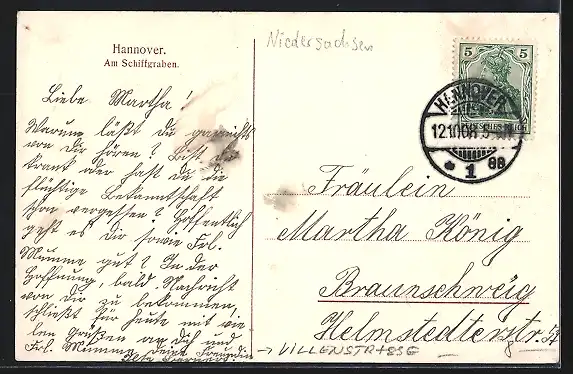 Hannover.
Am Schiffgraben.
Niedersachsen
5 5
HANNOVER
12.10.08. 5-6 N
* 1 gg
Liebe Martha!
Warum läßt du garnichts
von dir hören? Bist du
krank oder hast du die
flüchtige Bekanntschaft
schon vergessen? Hoffentlich
geht es dir sowie Frl.
Mumme gut? In der
Hoffnung, bald Nachricht
von dir zu bekommen,
schließt für heute mit vie-
len Grüßen an dich und
Frl. Mumme deine Freundin
Fräulein
Martha König
Braunschweig
Helmstedterstr.
→ VILLENSTRASSE